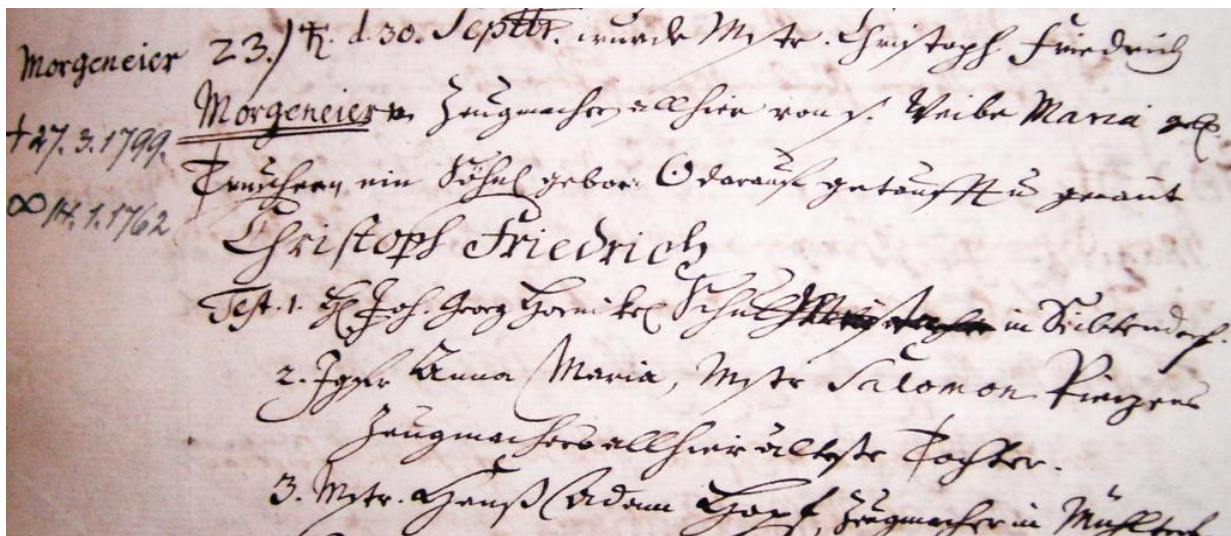 Morgeneier
† 27. 3. 1799.
∞ 14. 1. 1762
23.) ♄. d. 30. Septbr. wurde Mstr. Christoph Friedrich
Morgeneiern Zeugmachern allhier von s. Weibe Maria geb.
ein Söhnl. gebor. ☉ darauf getaufft u genant
Christoph Friedrich
Test. 1. H. Joh. Georg in
2. Jgfr Anna Maria, Mstr Salomon
Zeugmachers allhier älteste Tochter.
3. Mstr. Hanß Adam Hopf, Zeugmacher in